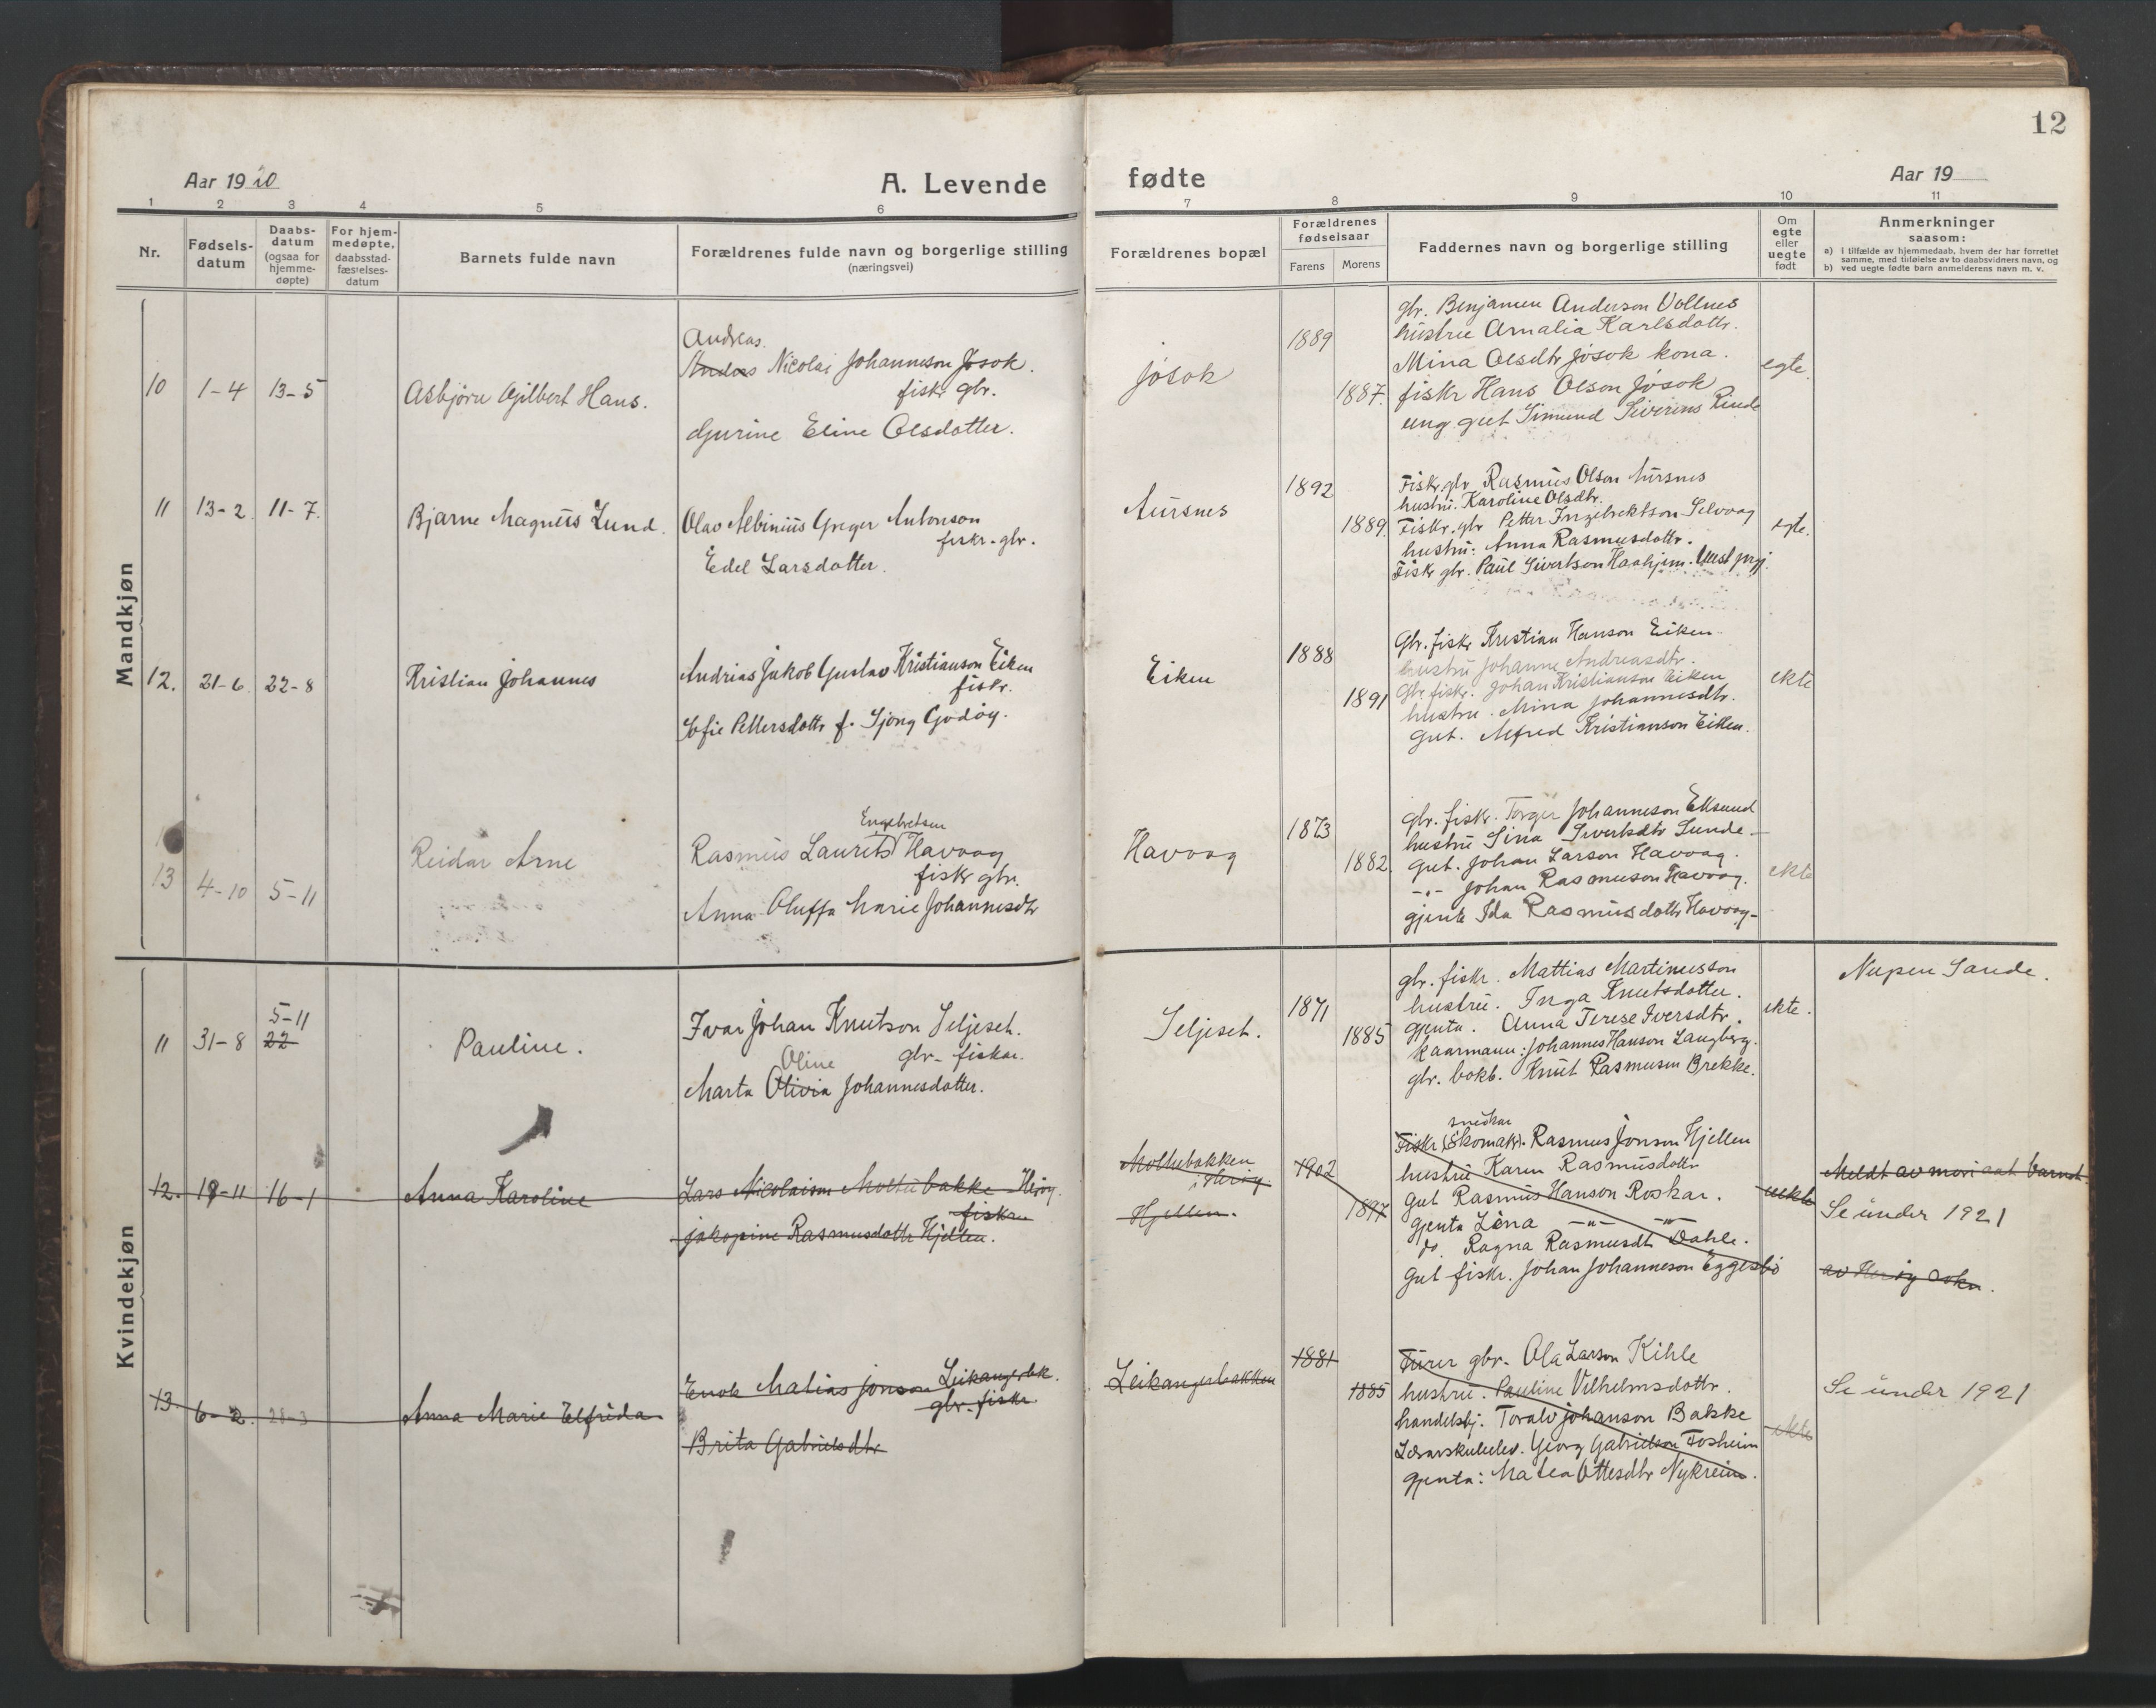 12
Aar 1920
A. Levende
fødte
Aar 19
1 2 3 4 5 6 7 8 9 10 11
Nr.
Fødsels-
datum
Daabs-
datum
(ogsaa for
hjemme-
døpte)
For hjem-
medøpte,
daabsstad-
fæstelses-
datum
Barnets fulde navn
Forældrenes fulde navn og borgerlige stilling
(næringsvei)
Forældrenes bopæl
Forældrenes
fødselsaar
Farens
Morens
Faddernes navn og borgerlige stilling
Om
egte
eller
uegte
født
Anmerkninger
saasom:
a) i tilfælde av hjemmedaab, hvem der har forrettet
samme, med tilføielse av to daabsvidners navn, og
b) ved uegte fødte barn anmelderens navn m. v.
Mandkjøn
10 1-4 13-5 Asbjørn Gjilbert Hans.
Andreas.
Anders Nicolai Johanneson Jøsok.
fiskr gbr.
Gurine Eline Olsdotter.
Jøsok
1889
1887.
gbr. Benjamen Anderson Vollnes
hustru Amalia Karlsdottr.
Mina Olsdtr Jøsok kona.
fiskr Hans Olson Jøsok
ung gut Simund Siverins Rinde
egte.
11 13-2. 11-7. Bjarne Magnus Lund.
Olav Albinius Greger Antonson
fiskr. gbr.
Edel Larsdotter.
Aursnes
1892
1889.
Fiskr. gbr Rasmus Olson Aursnes
hustru. Karoline Olsdtr.
Fiskr. gbr Petter Ingebrektson Selvaag
hustru: Anna Rasmusdottr.
Fiskr gbr. Paul Sivertson Haahjem.
egte.
12. 21-6. 22-8 Kristian Johannes
Andrias Jakob Gustav Kristianson Eiken
fiskr.
Sofie Pettersdottr f. Gjong Godøy.
Eiken
1888
1891
Gbr. fiskr Kristian Hanson Eiken
hustru Johanne Andreasdtr.
Gbr fiskr. Johan Kristianson Eiken
hustru. Mina Johannesdtr.
Gut. Alfred Kristianson Eiken.
ekte
13 4-10 5-11 Reidar Arne
Engebretsen
Rasmus Laurits Havaag
fiskr gbr.
Anna Oluffa Marie Johannesdtr
Havaag
1873
1882.
gbr. fiskr. Torger Johanneson Eksund
hustru Sina Sivertsdtr Sunde
gut. Johan Larson Havaag.
-"- Johan Rasmuson Havaag.
gjente Ida Rasmusdottr Havaag
ekte
Kvindekjøn
11 31-8 5-11
22
Pauline.
Ivar Johan Knutson Seljeset.
gbr. fiskar.
Oline
Marta Olivia Johannesdotter.
Seljeset.
1871
1885
gbr. fiskr. Mattias Martinusson
hustru. Inga Knutsdotter.
gjenta. Anna Terese Iversdtr.
kaarmann: Johannes Hanson Langberg.
gbr. bokb. Knut Rasmusen Brekke.
ekte.
Nupen Sande.
12. 19-11 16-1 Anna Karoline
Lars Nicolaison Moltubakke Herøy.
fiskar
Jakopine Rasmusdottr Hjellen.
Moltubakken
Herøy
Hjellen.
1902
1897
snedkar
Fiskr (Skomakr). Rasmus Jonson Hjellen
hustru Karen Rasmusdottr
Gut Rasmus Hanson Roskar.
Gjenta Lina -"- -"-
do. Ragna Rasmusdtr Dahle.
Gut fiskr. Johan Johanneson Eggesbø
uekte
Meldt av mori aat barnet.
Se under 1921
av Herøy sokn.
13. 6-2. 28-3 Anna Marie Elfrida
Enok Matias Jonson Leikangerbk.
gbr. fiskr.
Brita Gabrielsdtr
Leikangerbakken
1881
1885
Furer gbr. Ola Larson Kihle
hustru. Pauline Vilhelmsdottr.
handelsbj. Toralv Johanson Bakke
Lærarskuleelev. Georg Gabrielson Fosheim
gjenta: Matea Ottesdtr Nykreim.
ekte
Se under 1921